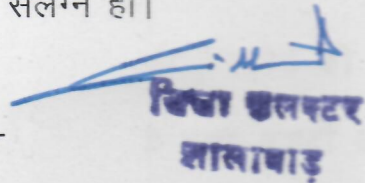 संलग्न हो।
जिला कलक्टर
झालावाड़